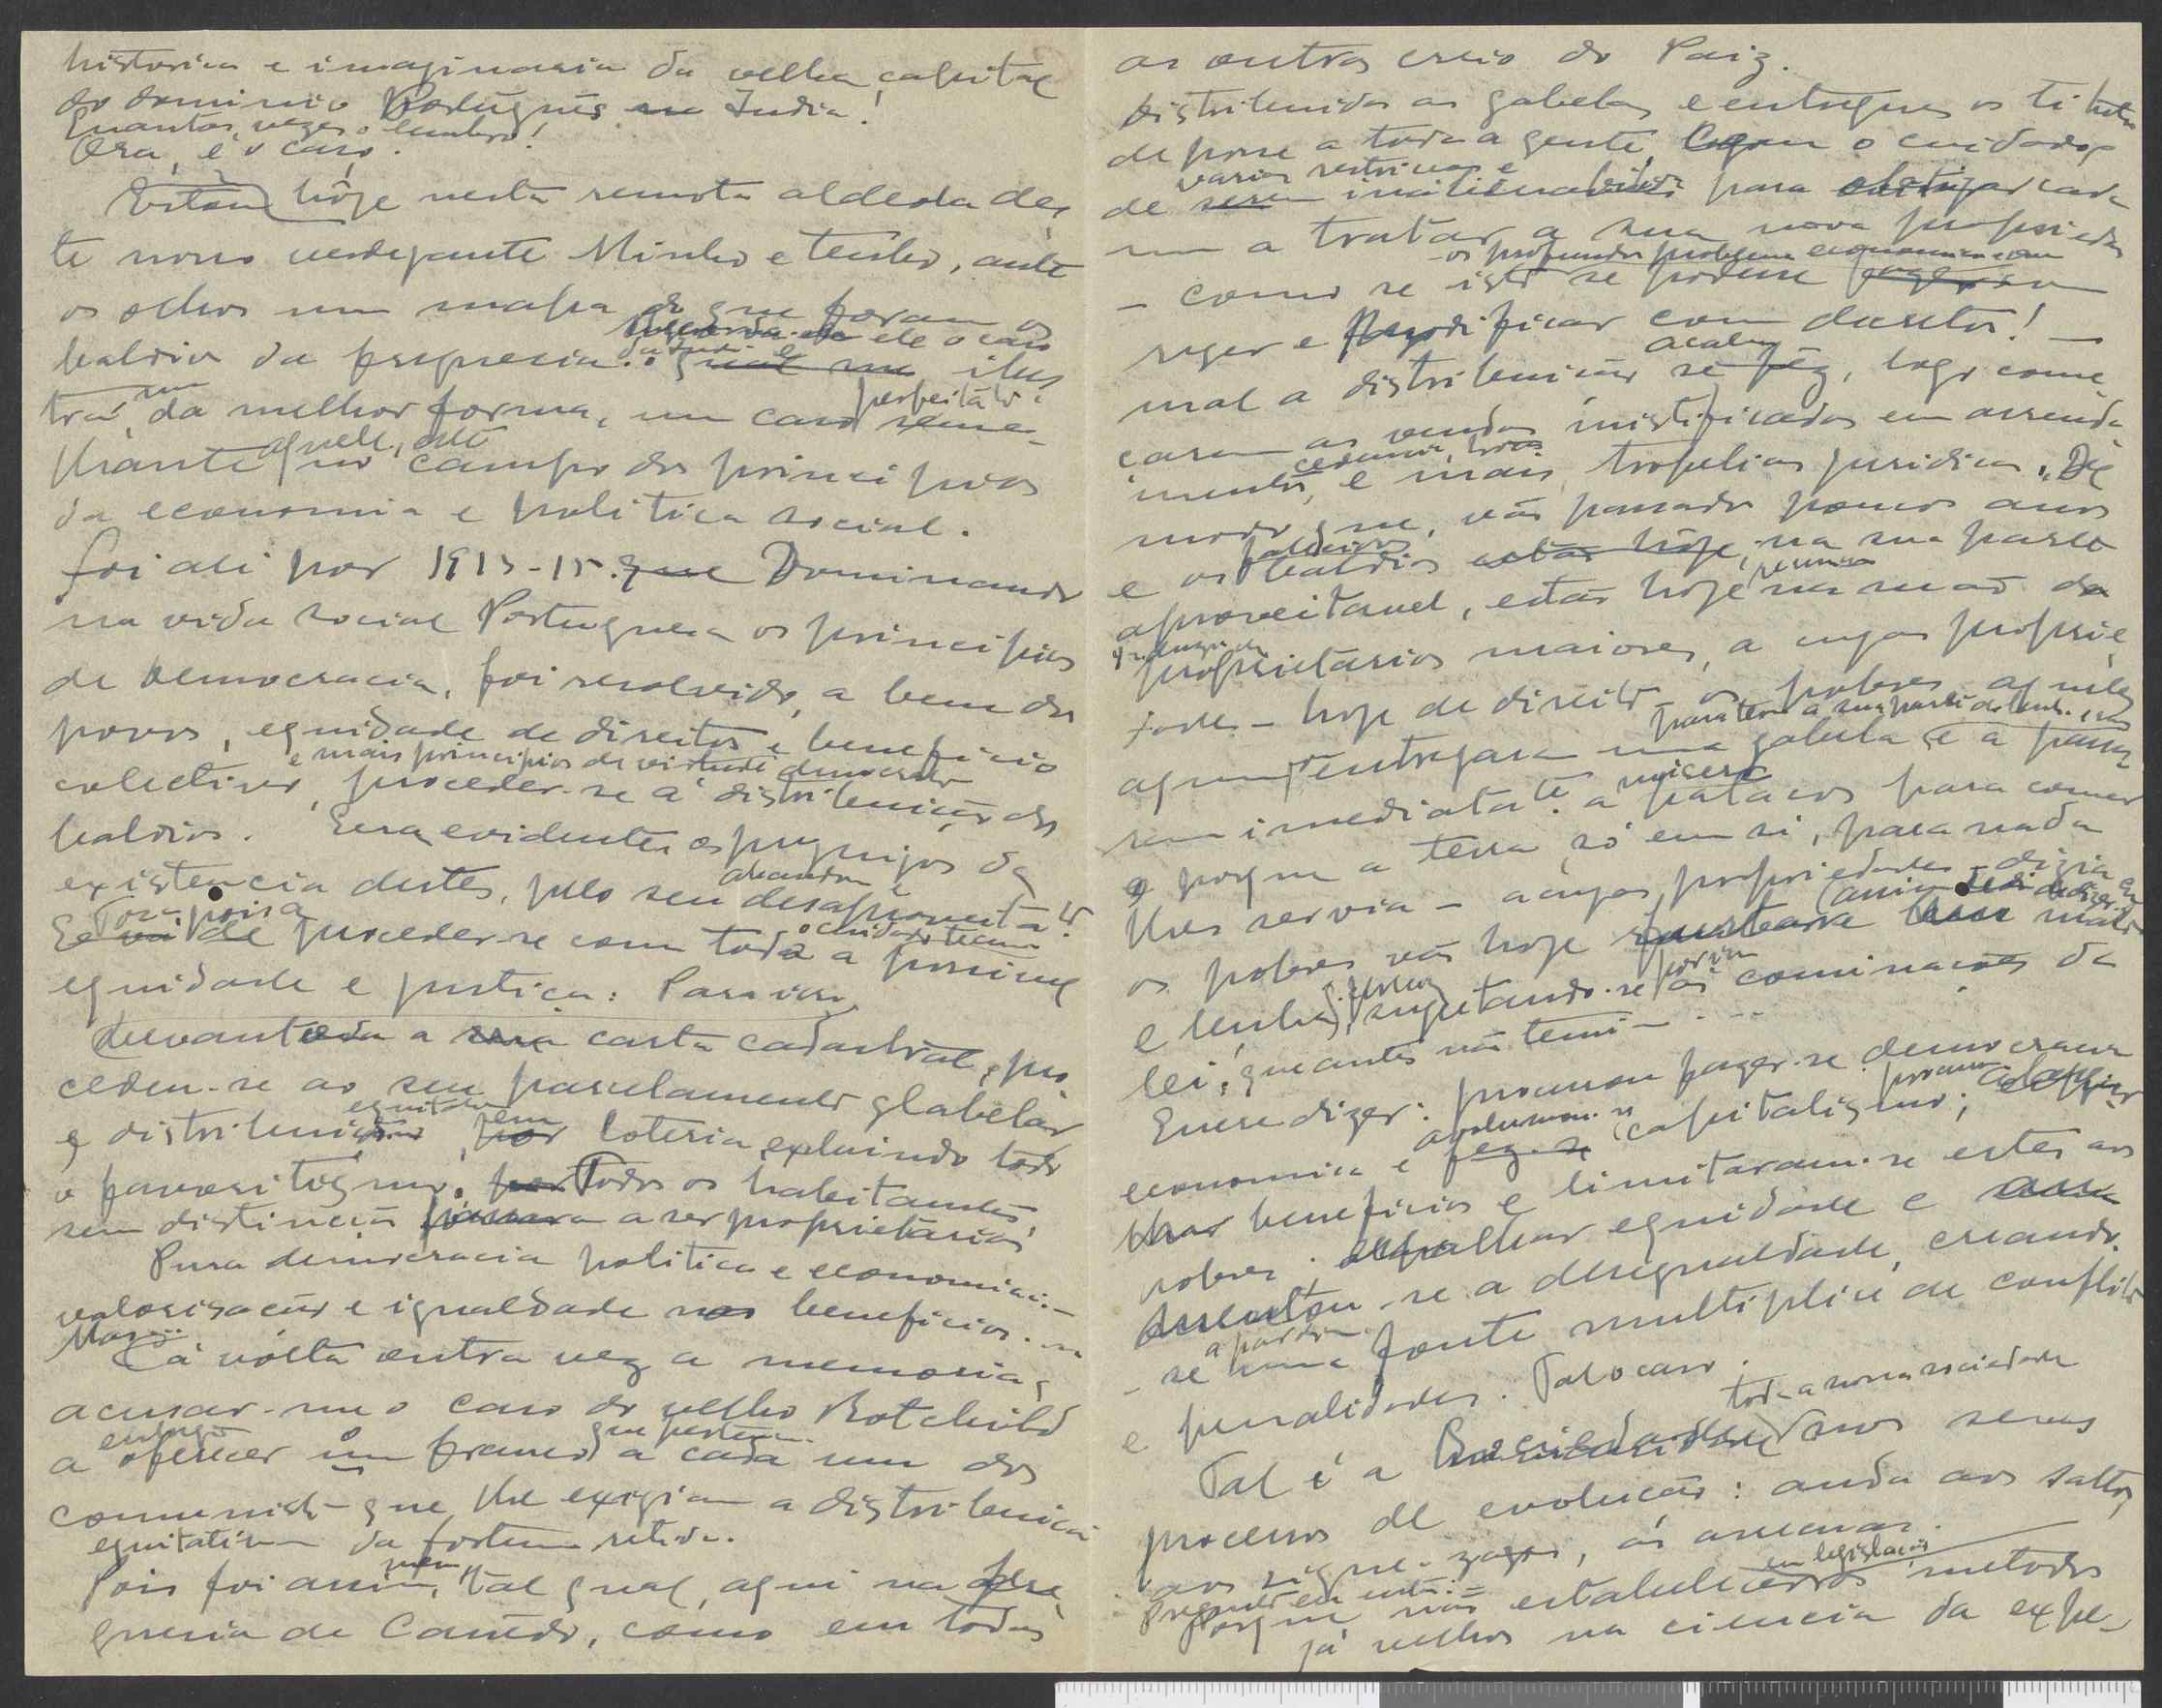 historica e imaginaria da velha capital
do dominio Português na India!
Quantas vezes o lembro!
Ora, é o caso.
Estou hoje nesta remota aldeola des-
te nosso verdejante Minho e tenho, ante
os olhos um mapa do que foram os
baldios da freguesia.
ilus
tra da melhor forma, um caso perfeitate seme-
lhante aquele, até no campo dos principios
da economia e politica social.
Foi ali por 1913-15. que Dominando
na vida social Portuguesa os principios
de Democracia, foi resolvido, a bem dos
povos, equidade de direitos e beneficio
e mais principios de virtude democratica
colectivo, proceder-se á distribuição dos
baldios. Eram evidentes os prejuizos da
existencia destes, pelo seu abandono e desaproveitato.
Fôra, pois a de proceder-se com todo o cuidado tecnico a possivel
equidade e justiça: Para isso
Levantada a sua carta cadastral, pro
cedeu-se ao seu parcelamento glabelar
e distribuição equitativa, por em loteria, excluindo todo
o favoritismo. por Todos os habitantes,
sem distinção passaram a ser proprietarios
Pura democracia politica e economica:-
valorisação e igualdade nos beneficios.
Mas...
Cá vólta outra vez a memoria,
acusar-me o caso do velho Rotchild
a oferecer um franco que pertencia a cada um dos
comunistas que lhe exigiam a distribuição
equitativa da fortuna retida.
Pois foi assim mesmo, tal qual, aqui na fre-
guesia de Canêdo, como em todas
as outras creio do Paiz.
Distribuidas as gabelas e entregues os titulos
de posse a toda a gente, com o cuidado
varias restrições e
de serem inalienabilidade para obrigar cada
um a tratar a sua nova propriedade
os profundos problemas economicos
- como se isto se podesse fazer
reger e modificar com decretos! -
mal a distribuição acabou se fez, logo come
çaram as vendas mistificadas em arrenda
mentos, cedencias, trocas e mais tropelias juridicas. De
modo que, vão passados poucos anos
e os baldios estão hoje, na sua parte
aproveitavel, estão hoje na mão dos
proprietarios maiores, a cujas proprie-
dades - hoje de direito - os pobres aqueles
para terem a sua parte
a quem entregaram uma gabela e a passa
ram imediatate. a misero patacos para comer
e porque a terra só em si, para nada
lhes servia - a cujas propriedades, dizia eu
os pobres vão hoje mato
e lenha, sujeitando-se porém ás cominações da
lei, que antes não temiam ...
Quere dizer: procurou fazer-se democracia
economica e avolumou-se fez-se capitalismo; procurou
beneficios e limitaram-se estes aos
pobres. espalhar equidade e
assentou-se a desigualdade, creando
-se uma fonte multiplice de conflitos
e penalidades. Tal o caso.
Tal é a Sociedade toda a nossa sociedade nos seus
processos de evolução: anda aos saltos,
aos zigue-zagues, ás arrecuas.
Porque não estabelecemos em legislação metodos
já velhos na ciencia da expe-